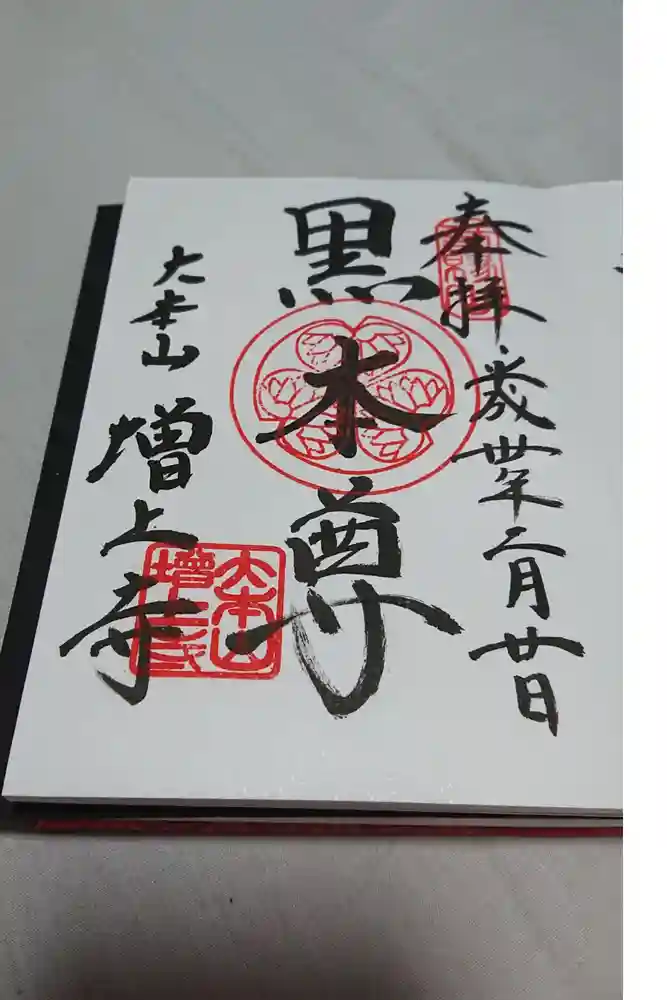 奉拝 歳丗年二月廿日
黒本尊
大本山 増上寺
大本山
増上寺